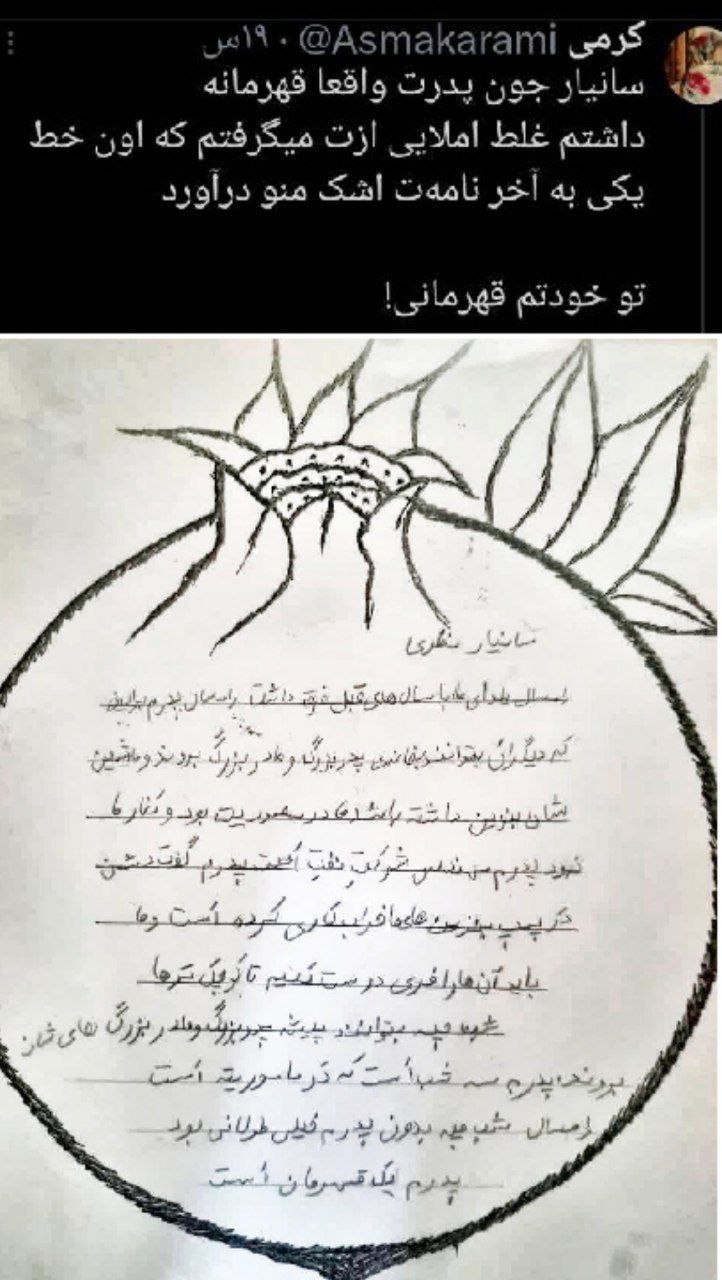 کرمی @Asmakarami · ۱۹س
سانیار جون پدرت واقعا قهرمانه
داشتم غلط املایی ازت میگرفتم که اون خط
یکی به آخر نامه‌ت اشک منو درآورد
تو خودتم قهرمانی!
سانیار
امسال یلدای ما با سال‌های قبل فرق داشت امسال پدرم برای این
که دیگران بتوانند خانه‌ی پدربزرگ و مادربزرگ بروند و ماشین
شان بنزین داشته باشد ما در معموریت بود و کنار ما
نبود پدرم مهندس شرکت نفت است پدرم گفت دشمن
در پمپ بنزین های ما خراب کاری کرده است و ما
باید آن ها را فوری درست کنیم تا کوچک ترها
شب چله بتوانند پیش پدربزرگ و مادر بزرگ های شان
بروند پدرم سه شب است که در ماموریته است
امسال شب چله بدون پدرم خیلی طولانی بود
پدرم یک قهرمان است